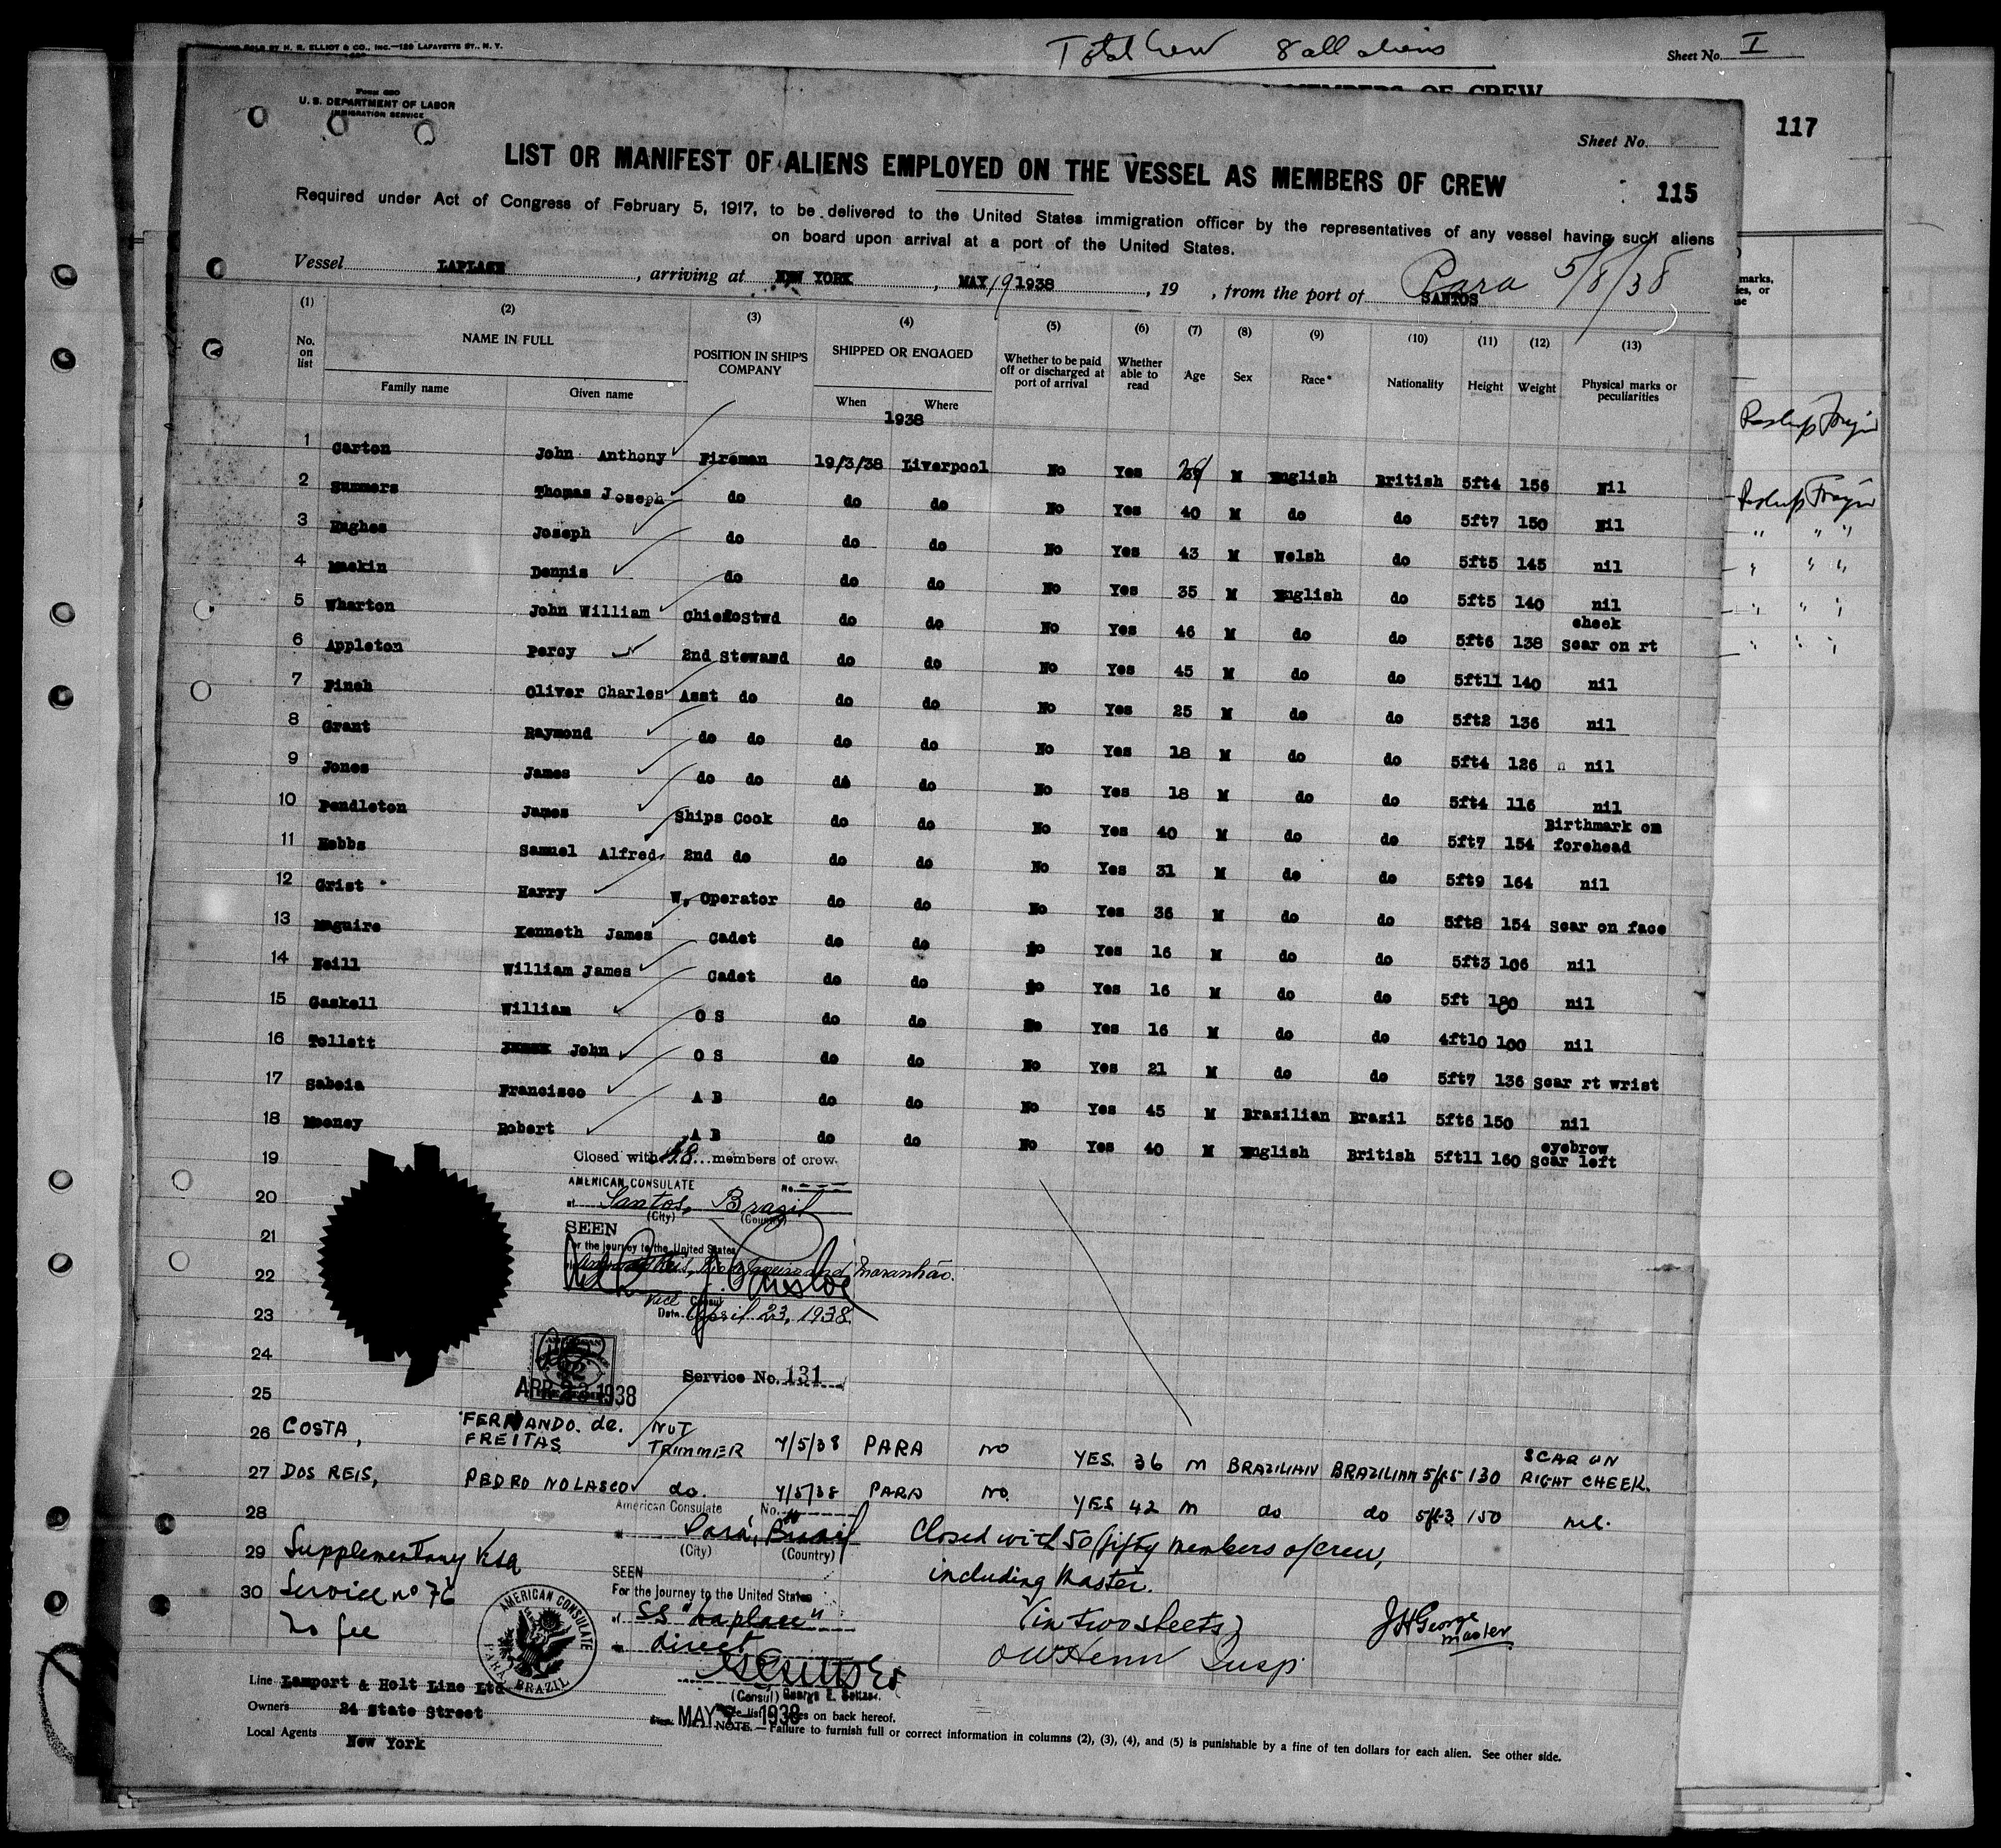 SOLD BY H. R. ELLIOT & CO., INC.—129 LAFAYETTE ST., N. Y.
Total Crew 8 all aliens
Sheet No. I
MEMBERS OF CREW
117
Form 680
U. S. DEPARTMENT OF LABOR
IMMIGRATION SERVICE
Sheet No.
LIST OR MANIFEST OF ALIENS EMPLOYED ON THE VESSEL AS MEMBERS OF CREW
115
Required under Act of Congress of February 5, 1917, to be delivered to the United States immigration officer by the representatives of any vessel having such aliens
on board upon arrival at a port of the United States.
Vessel LAPLACE, arriving at NEW YORK, MAY 19 1938, 19 , from the port of SANTOS Para 5/8/38
(1) (2) (3) (4) (5) (6) (7) (8) (9) (10) (11) (12) (13)
No. on list NAME IN FULL Family name Given name POSITION IN SHIP'S COMPANY SHIPPED OR ENGAGED When Where Whether to be paid off or discharged at port of arrival Whether able to read Age Sex Race* Nationality Height Weight Physical marks or peculiarities
1938
1 Garton John Anthony Fireman 19/3/38 Liverpool No Yes M English British 5ft4 156 Nil
2 Summers Thomas Joseph do do do No Yes 40 M do do 5ft7 150 Nil
3 Hughes Joseph do do do No Yes 43 M Welsh do 5ft5 145 nil
4 Mackin Dennis do do do No Yes 35 M English do 5ft5 140 nil
5 Wharton John William Chief Stwd do do No Yes 46 M do do 5ft6 138 scar on rt cheek
6 Appleton Percy 2nd Steward do do No Yes 45 M do do 5ft11 140 nil
7 Finch Oliver Charles Asst do do do No Yes 25 M do do 5ft2 136 nil
8 Grant Raymond do do do do No Yes 18 M do do 5ft4 126 nil
9 Jones James do do do do No Yes 18 M do do 5ft4 116 nil
10 Pendleton James Ships Cook do do No Yes 40 M do do 5ft7 154 Birthmark on forehead
11 Hobbs Samuel Alfred 2nd do do do No Yes 31 M do do 5ft9 164 nil
12 Grist Harry W. Operator do do No Yes 36 M do do 5ft8 154 Scar on face
13 Maguire Kenneth James Cadet do do No Yes 16 M do do 5ft3 106 nil
14 Neill William James Cadet do do No Yes 16 M do do 5ft nil
15 Gaskell William O S do do No Yes 16 M do do 4ft10 100 nil
16 Tollett John O S do do No Yes 21 M do do 5ft7 136 scar rt wrist
17 Saboia Francisco A B do do No Yes 45 M Brazilian Brazil 5ft6 150 nil
18 Mooney Robert A B do do No Yes 40 M English British 5ft11 160 scar left eyebrow
19 Closed with 18 members of crew.
AMERICAN CONSULATE No.
20 at Santos, Brazil
(City) (Country)
21 SEEN
For the journey to the United States
22 Angra dos Reis, Rio de Janeiro and Maranhão.
Vice Consul
23 Date April 23, 1938
24 Service No. 131
25 APR 23 1938
26 COSTA, FERNANDO. de. FREITAS NUT TRIMMER 7/5/38 PARA NO YES. 36 M BRAZILIAN BRAZILIAN 5ft5 130 SCAR ON RIGHT CHEEK.
27 DOS REIS, PEDRO NOLASCO do. 7/5/38 PARA NO. YES 42 M do do 5ft3 150 nil.
28 American Consulate No.
at Pará, Brazil
(City) (Country)
Closed with 50 (fifty members of crew,
including Master.
(in two sheets)
29 Supplementary Visa
30 Service no 76
No fee
SEEN
For the Journey to the United States
SS "Laplace"
direct
AMERICAN CONSULATE
PARÁ, BRAZIL
J H George
Master
(Consul) George E. Seltzer.
MAY 7 1938
Line Lamport & Holt Line Ltd
Owners 24 State Street
Local Agents New York
on back hereof.
NOTE.—Failure to furnish full or correct information in columns (2), (3), (4), and (5) is punishable by a fine of ten dollars for each alien. See other side.